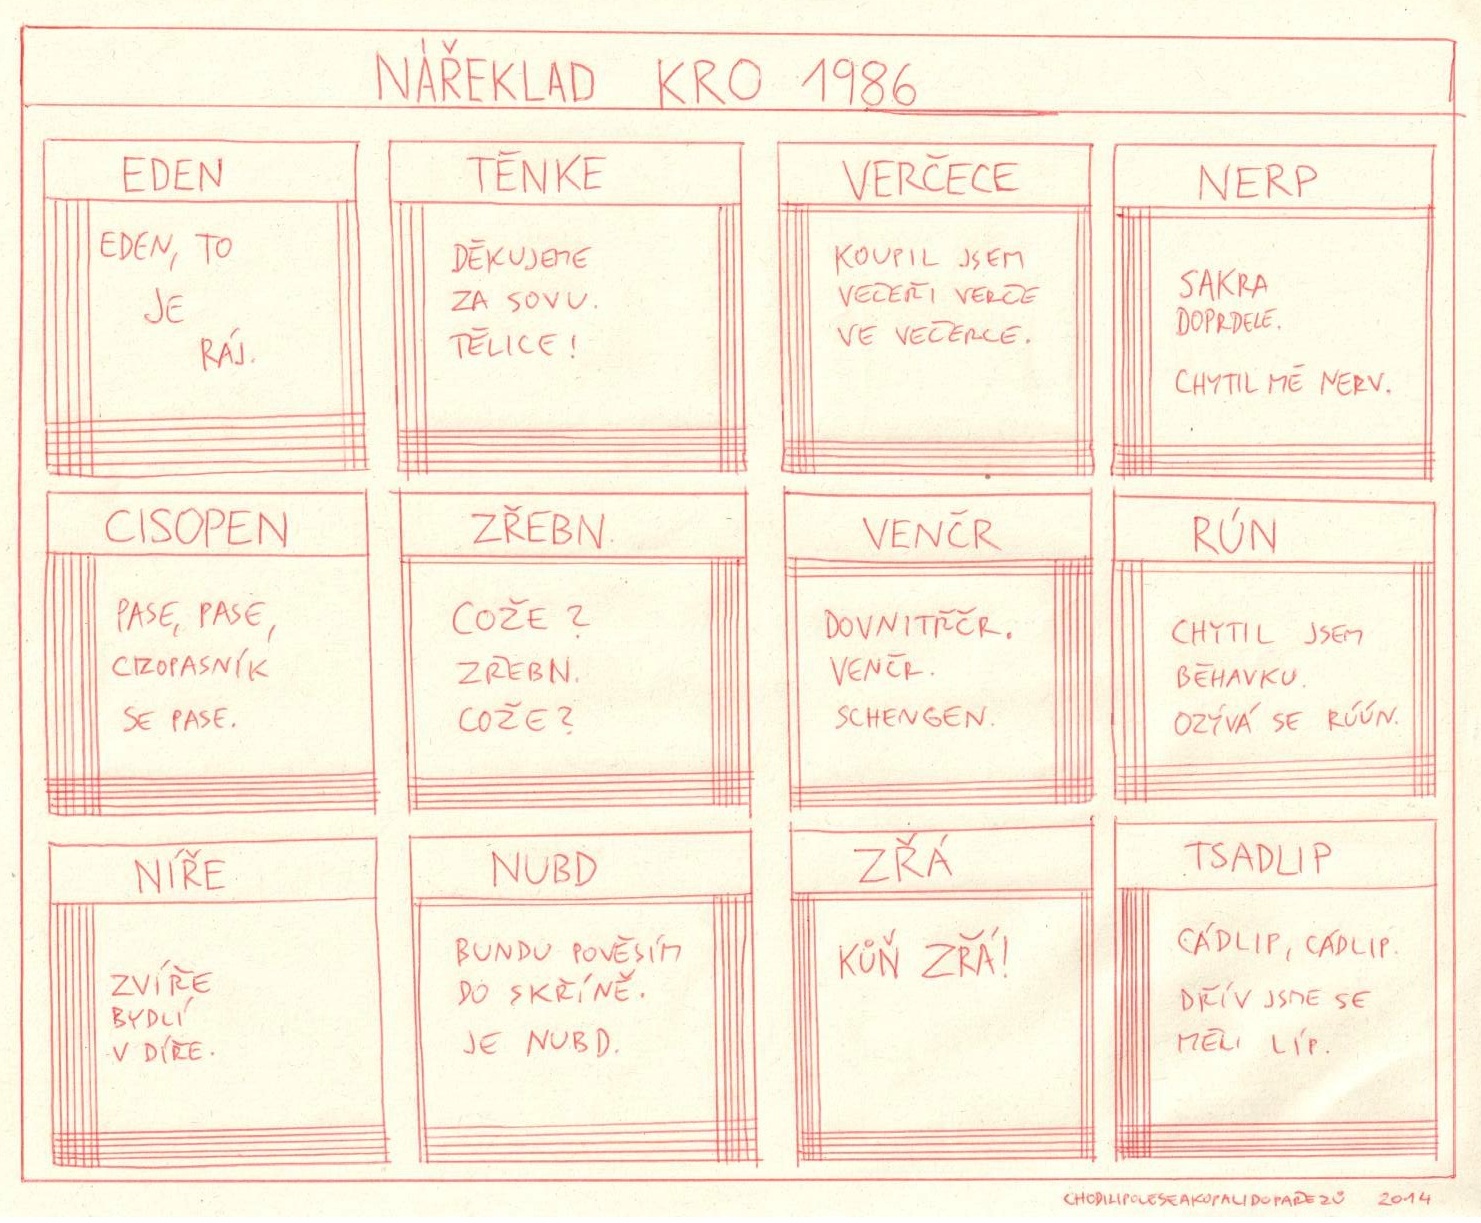 NÁŘEKLAD KRO 1986
EDEN
EDEN, TO
JE
RÁJ.
TĚNKE
DĚKUJEME
ZA SOVU.
TĚLICE!
VERČECE
KOUPIL JSEM
VEČEŘI VERČE
VE VEČERCE.
NERP
SAKRA
DOPRDELE.
CHYTIL MĚ NERV.
CISOPEN
PASE, PASE,
CIZOPASNÍK
SE PASE.
ZŘEBN.
COŽE?
ZŘEBN.
COŽE?
VENČR
DOVNITŘČR.
VENČR.
SCHENGEN.
RÚN
CHYTIL JSEM
BĚHAVKU.
OZÝVÁ SE RÚÚN.
NÍŘE
ZVÍŘE
BYDLÍ
V DÍŘE.
NUBD
BUNDU POVĚSÍM
DO SKŘÍNĚ.
JE NUBD.
ZŘÁ
KŮŇ ZŘÁ!
TSADLIP
CÁDLIP, CÁDLIP.
DŘÍV JSME SE
MĚLI LÍP.
CHODILIPOLESEAKOPALIDOPAŘEZŮ 2014